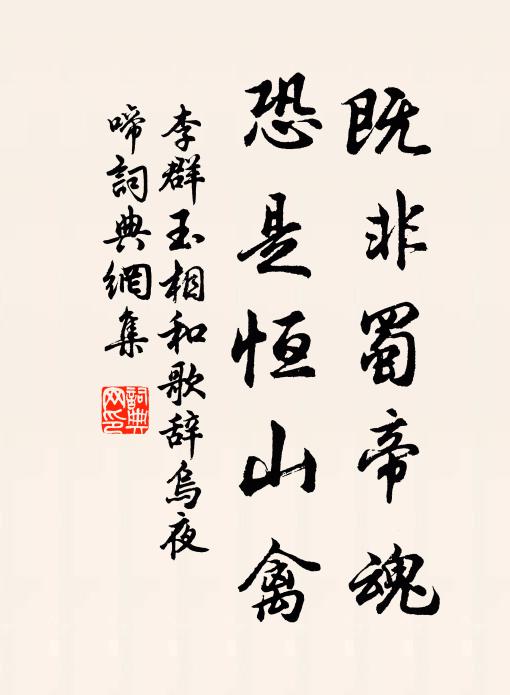 既非蜀帝魂
恐是恒山禽
李群玉相和歌辞烏夜
啼詞典網集
詞典
网印